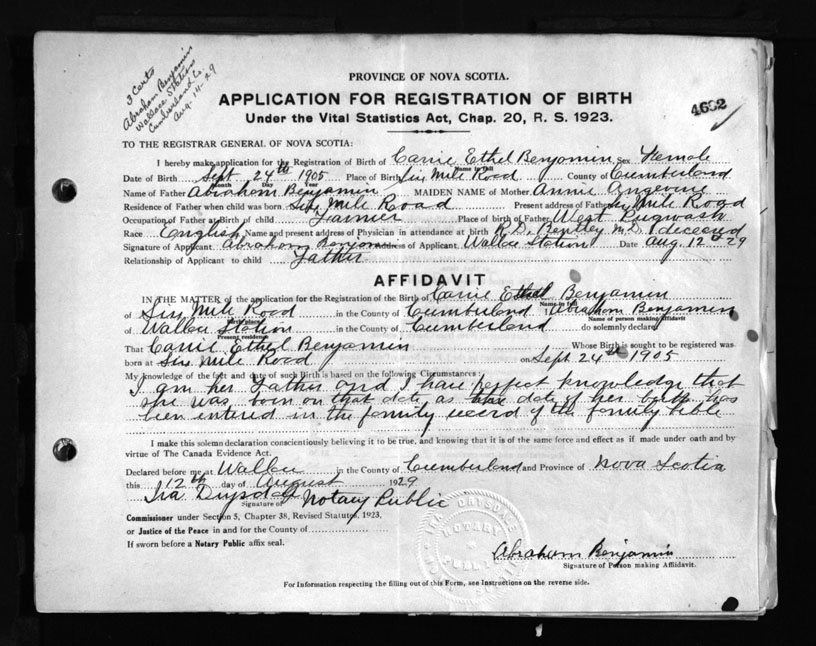 3 Certs
Abraham Benjamin
Wallace Station
Cumberland Co.
Aug. 14-29
4662
PROVINCE OF NOVA SCOTIA.
APPLICATION FOR REGISTRATION OF BIRTH
Under the Vital Statistics Act, Chap. 20, R. S. 1923.
TO THE REGISTRAR GENERAL OF NOVA SCOTIA:
I hereby make application for the Registration of Birth of Carrie Ethel Benjamin Sex Female
Name in full
Date of Birth Sept 24th 1905 Place of Birth Six Mile Road County of Cumberland
Month Day Year
Name of Father Abraham Benjamin MAIDEN NAME of Mother Annie Angevine
Residence of Father when child was born Six Mile Road Present address of Father Six Mile Road
Occupation of Father at Birth of child Farmer Place of birth of Father West Pugwash
Race English Name and present address of Physician in attendance at birth R.D. Bentley M.D. deceased
Signature of Applicant Abraham Benjamin Address of Applicant Wallace Station Date Aug. 12th 29
Relationship of Applicant to child Father
AFFIDAVIT
IN THE MATTER of the application for the Registration of the Birth of Carrie Ethel Benjamin
Name in full
of Six Mile Road in the County of Cumberland I Abraham Benjamin
Name of person making affidavit
of Wallace Station in the County of Cumberland do solemnly declare
Present residence
That Carrie Ethel Benjamin Whose Birth is sought to be registered was
born at Six Mile Road on Sept. 24th 1905
My knowledge of the fact and date of such Birth is based on the following Circumstances:
I am her Father and I have perfect knowledge that
she was born on that date as the date of her birth has
been entered in the family record of the family bible
I make this solemn declaration conscientiously believing it to be true, and knowing that it is of the same force and effect as if made under oath and by
virtue of The Canada Evidence Act.
Declared before me at Wallace in the County of Cumberland and Province of Nova Scotia
this 12th day of August 1929
Ira Drysdale Notary Public
Signature of
Commissioner under Section 5, Chapter 38, Revised Statutes, 1923.
or Justice of the Peace in and for the County of
If sworn before a Notary Public affix seal.
IRA DRYSDALE
NOTARY
PUBLIC
Abraham Benjamin
Signature of Person making Affidavit.
For Information respecting the filling out of this Form, see Instructions on the reverse side.